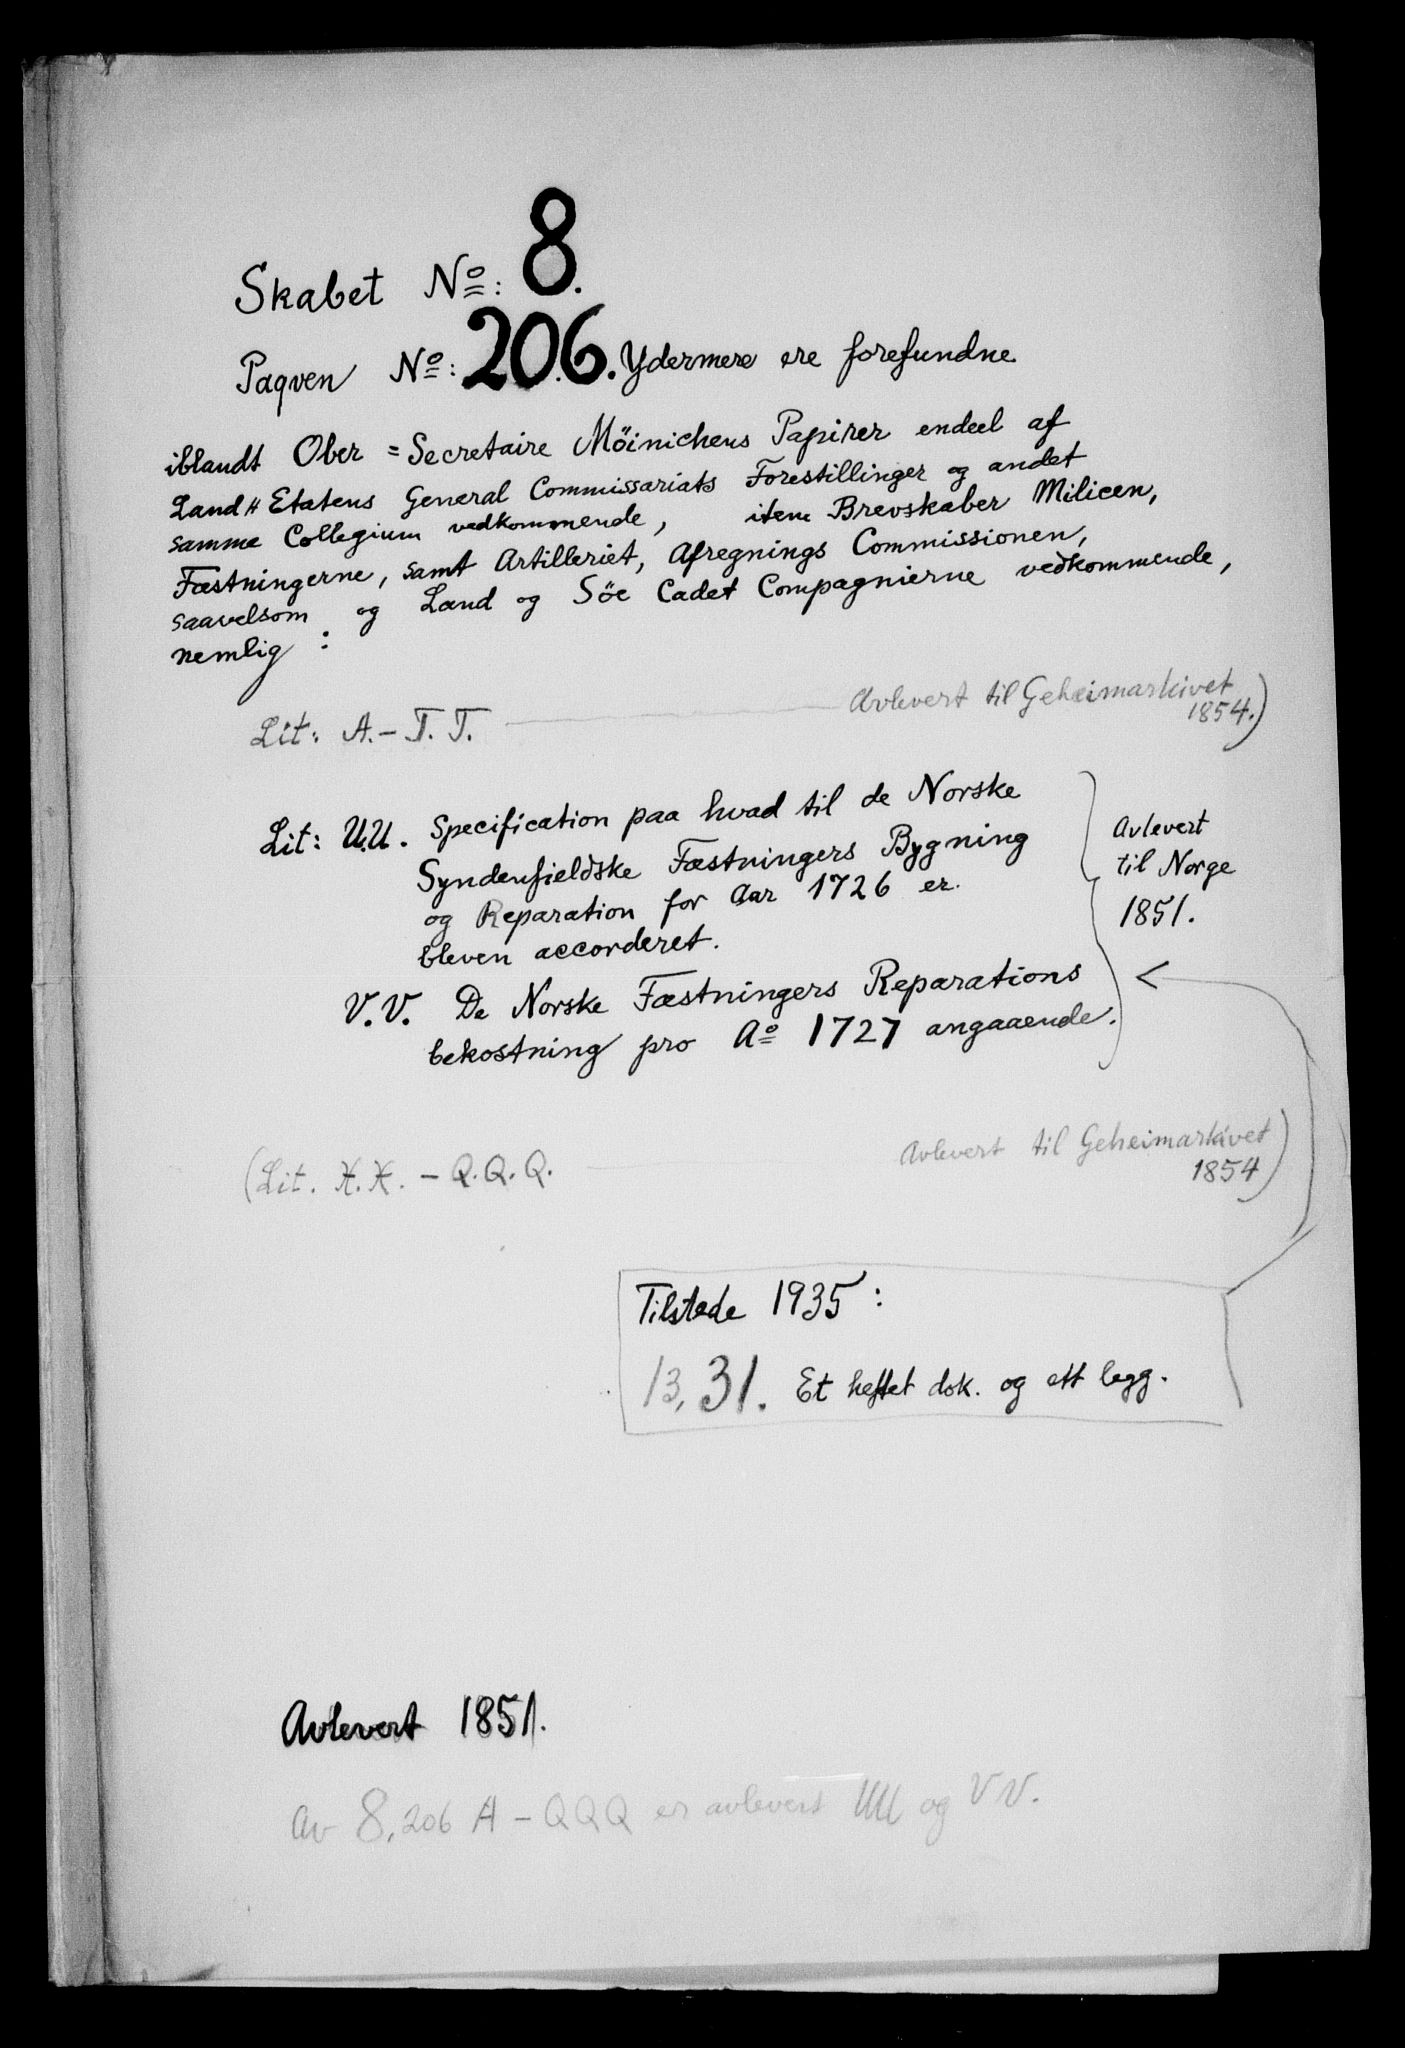 Skabet Nº: 8.
Paqven Nº: 206. Ydermere ere forefundne
iblandt Ober = Secretaire Möinichens Papirer endeel af
Land = Etatens General Commissariats Forestillinger og andet
samme Collegium vedkommende, item Brevskaber Milicen,
Fæstningerne, samt Artilleriet, Afregnings Commissionen,
saavelsom og Land og Söe Cadet Compagnierne vedkommende,
nemlig :
Lit: A. – T. T. Avlevert til Geheimarkivet
1854.)
Lit: U.U. Specification paa hvad til de Norske
Syndenfieldske Fæstningers Bygning
og Reparation for Aar 1726 er
bleven accorderet.
Avlevert
til Norge
1851.
V.V. De Norske Fæstningers Reparations
bekostning pro Aº 1727 angaaende.
(Lit. X.X. – Q.Q.Q. Avlevert til Geheimarkivet
1854)
Tilstede 1935 :
13, 31. Et heftet dok. og ett legg.
Avlevert 1851.
Av 8,206 A – QQQ er avlevert UU og VV.